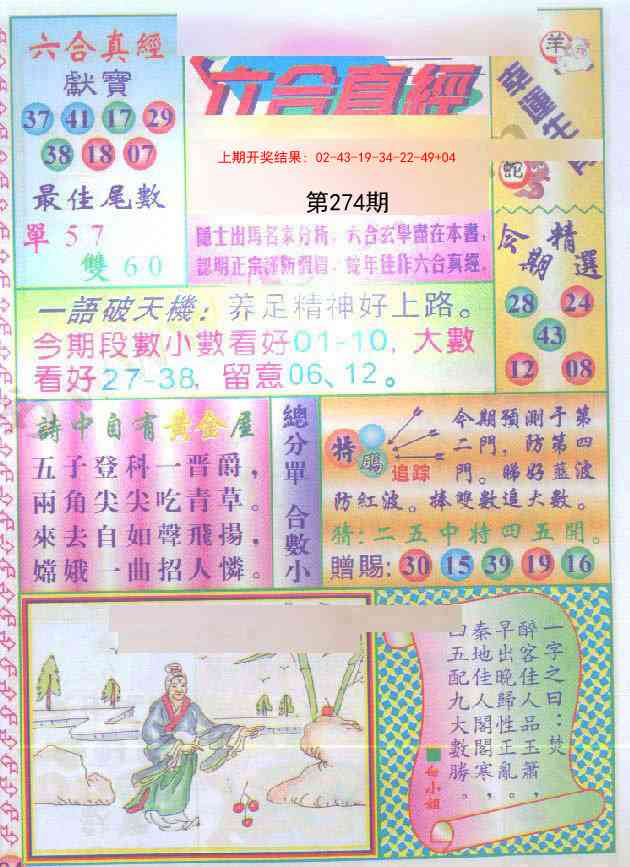 六合真經
獻寶
37 41 17 29
38 18 07
最佳尾數
單 5 7
雙 6 0
六合真經
上期开奖结果: 02-43-19-34-22-49+04
第274期
隱士出馬名家分析，六合玄學盡在本書，
認明正宗謹防假冒，蛇年佳作六合真經。
羊
幸運生
蛇
今期精選
28 24
43
12 08
一語破天機：养足精神好上路。
今期段數小數看好01-10，大數
看好27-38，留意06、12。
詩中自有黃金屋
五子登科一晋爵，
兩角尖尖吃青草。
來去自如聲飛揚，
嫦娥一曲招人憐。
總分單 合數小
特碼
追踪
今期預測于第
二門，防第四
門。睇好藍波
防紅波。棒雙數追大數。
猜：二五中特四五開。
贈賜：30 15 39 19 16
一字之曰：焚
醉客佳人品玉蕭，
早出晚歸性正亂，
秦地佳人閣閣寒。
五配九大數勝
白小姐